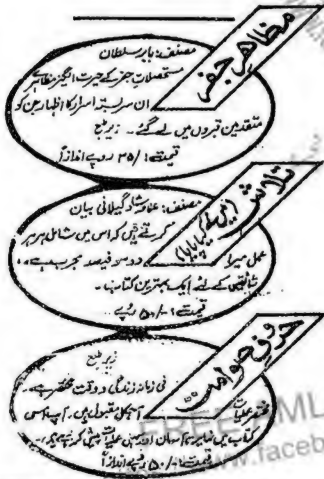 مظاہر جفر
مصنف: بابر سلطان
مستحصلات جفر کے حیرت انگیز مظاہرے
ان سربستہ اسرار کا اظہار جن کو
متقدمین قبروں میں لے گئے۔ زیر طبع
قیمت: /۲۵ روپے اندازاً
تلاش (میں نے کیا پایا)
مصنف: علامہ شاد گیلانی بیان
کرتے ہیں کہ اس میں شامل ہر ہر
عمل میرا دو سو فیصد مجرب ہے۔
شائقین کے لئے ایک بہترین کتاب۔
قیمت: -/۵۰ روپے
حروف صوامت
زیر طبع
فی زمانہ زندگی و وقت مختصر ہے۔
مختصر عملیات آجکل مقبول ہیں۔ آپ اس
کتاب میں نہایت آسان اور عملیات پیش کر رہے ہیں۔
قیمت: -/۵۰ روپے اندازاً
FREE AML
www.faceb